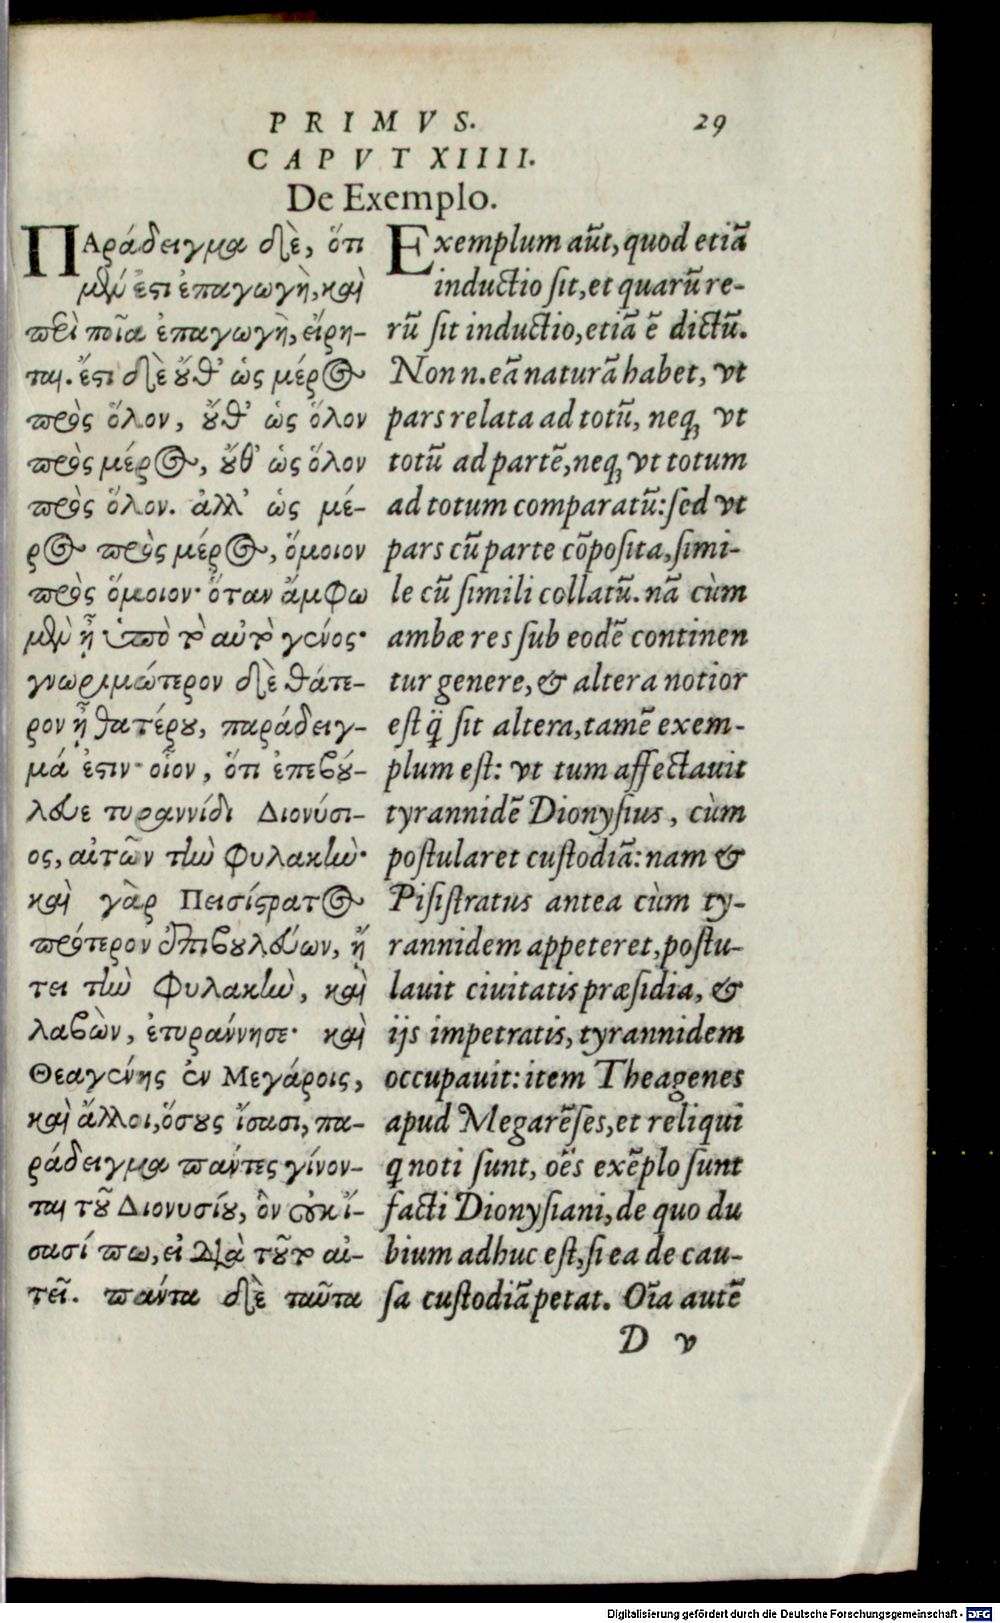 PRIMVS. 29
CAPVT XIIII.
De Exemplo.
ΠΑράδειγμα δὲ, ὅτι
μὲν ἐστι ἐπαγωγὴ, καὶ
περὶ ποῖα ἐπαγωγὴ, εἴρη-
ται. ἔστι δὲ οὔθ' ὡς μέρος
πρὸς ὅλον, οὔθ' ὡς ὅλον
πρὸς μέρος, οὔθ' ὡς ὅλον
πρὸς ὅλον. ἀλλ' ὡς μέ-
ρος πρὸς μέρος, ὅμοιον
πρὸς ὅμοιον· ὅταν ἄμφω
μὲν ᾖ ὑπὸ τὸ αὐτὸ γένος·
γνωριμώτερον δὲ θάτε-
ρον ᾖ θατέρου, παράδειγ-
μά ἐστιν· οἷον, ὅτι ἐπεβού-
λευε τυραννίδι Διονύσι-
ος, αἰτῶν τὴν φυλακήν·
καὶ γὰρ Πεισίστρατος
πρότερον ἐπιβουλεύων, ᾔ
τει τὴν φυλακὴν, καὶ
λαβὼν, ἐτυράννησε· καὶ
Θεαγένης ἐν Μεγάροις,
καὶ ἄλλοι, ὅσους ἴσασι, πα-
ράδειγμα πάντες γίνον-
ται τοῦ Διονυσίου, ὃν οὐκ ἴ-
σασί πω, εἰ διὰ τοῦτο αἰ-
τεῖ. πάντα δὲ ταῦτα
Exemplum aūt, quod etiā
inductio sit, et quarū re-
rū sit inductio, etiā ē dictū.
Non n. eā naturā habet, vt
pars relata ad totū, neq; vt
totū ad partē, neq; vt totum
ad totum comparatū: sed vt
pars cū parte cōposita, simi-
le cū simili collatū. nā cùm
ambæ res sub eodē continen
tur genere, & altera notior
est q̄ sit altera, tamē exem-
plum est: vt tum affectauit
tyrannidē Dionysius, cùm
postularet custodiā: nam &
Pisistratus antea cùm ty-
rannidem appeteret, postu-
lauit ciuitatis præsidia, &
ijs impetratis, tyrannidem
occupauit: item Theagenes
apud Megarēses, et reliqui
q noti sunt, oēs exēplo sunt
facti Dionysiani, de quo du
bium adhuc est, si ea de cau-
sa custodiā petat. Oīa autē
D v
Digitalisierung gefördert durch die Deutsche Forschungsgemeinschaft - DFG